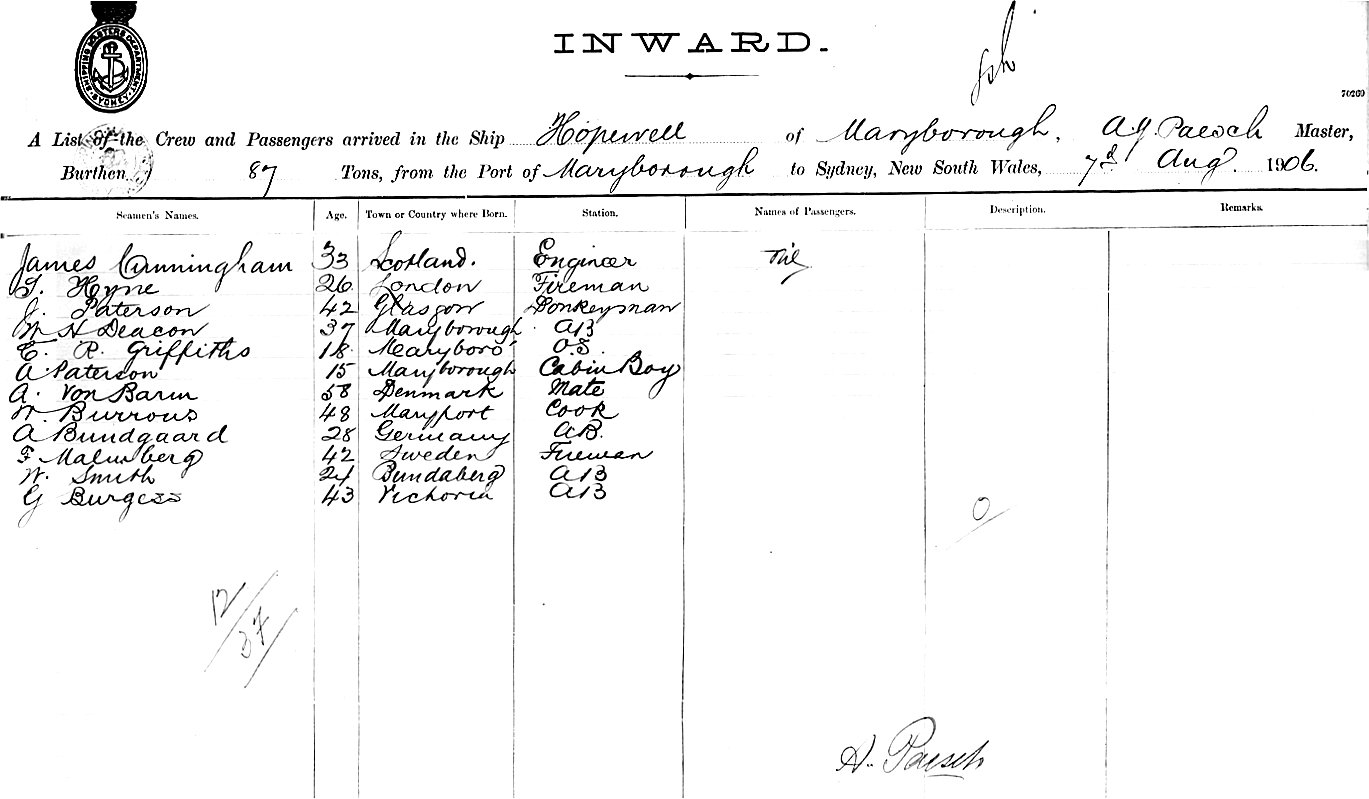 SHIPPING MASTERS DEPARTMENT SYDNEY
INWARD.
70269
A List of the Crew and Passengers arrived in the Ship Hopewell of Maryborough, A.J. Paesch Master,
Burthen 87 Tons, from the Port of Maryborough to Sydney, New South Wales, 7th Aug 1906.
Seamen's Names. Age. Town or Country where Born. Station. Names of Passengers. Description. Remarks.
James Cunningham 33 Scotland. Engineer Nil
T. Hyne 26 London Fireman
J. Paterson 42 Glasgow Donkeyman
W H Deacon 37 Maryborough AB
E. R. Griffiths 18 Maryboro' O.S.
A Paterson 15 Maryborough Cabin Boy
A. Von Barm 58 Denmark Mate
W. Burrows 48 Maryport Cook
A Bundgaard 28 Germany AB.
F Malmberg 42 Sweden Fireman
W. Smith 24 Bundaberg AB
G Burgess 43 Victoria AB
0
12/
37/
A. Paesch